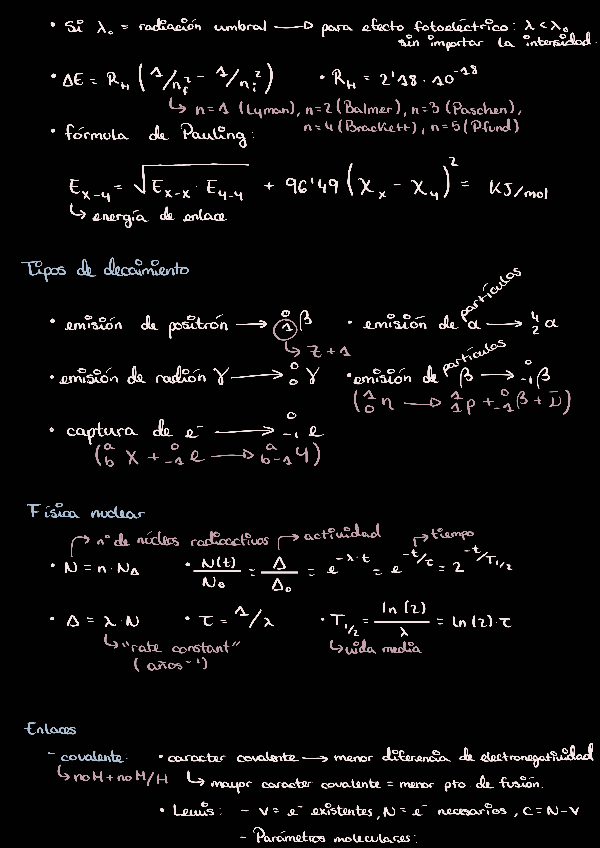 • Si λ₀ = radiación umbral → para efecto fotoeléctrico: λ < λ₀
sin importar la intensidad.
• ΔE = R_H (1/n_f² - 1/n_i²) • R_H = 2'18 · 10⁻¹⁸
↳ n=1 (Lyman), n=2 (Balmer), n=3 (Paschen),
n=4 (Brackett), n=5 (Pfund)
• fórmula de Pauling:
E_x-y = √(E_x-x · E_y-y) + 96'49 (χ_x - χ_y)² = KJ/mol
↳ energía de enlace
Tipos de decaimiento
• emisión de positrón → ⁰₁β • emisión de partículas α → ⁴₂α
↳ Z + 1
• emisión de radión γ → ⁰₀γ • emisión de partículas β → ⁰₋₁β
(¹₀n → ¹₁p + ⁰₋₁β + ν̄)
• captura de e⁻ → ⁰₋₁e
(ᵃ_b X + ⁰₋₁e → ᵃ_b-1 Y)
Física nuclear
nº de núcleos radioactivos → actividad → tiempo
• N = n · N_A • N(t)/N₀ = A/A₀ = e^(-λ·t) = e^(-t/τ) = 2^(-t/T₁/₂)
• A = λ · N • τ = 1/λ • T₁/₂ = ln(2)/λ = ln(2)·τ
↳ "rate constant" ↳ vida media
(años⁻¹)
Enlaces
- covalente • caracter covalente → menor diferencia de electronegatividad
↳ no M + no M/H ↳ mayor caracter covalente = menor pto de fusión.
• Lewis: - V = e⁻ existentes, N = e⁻ necesarios, C = N-V
- Parámetros moleculares: